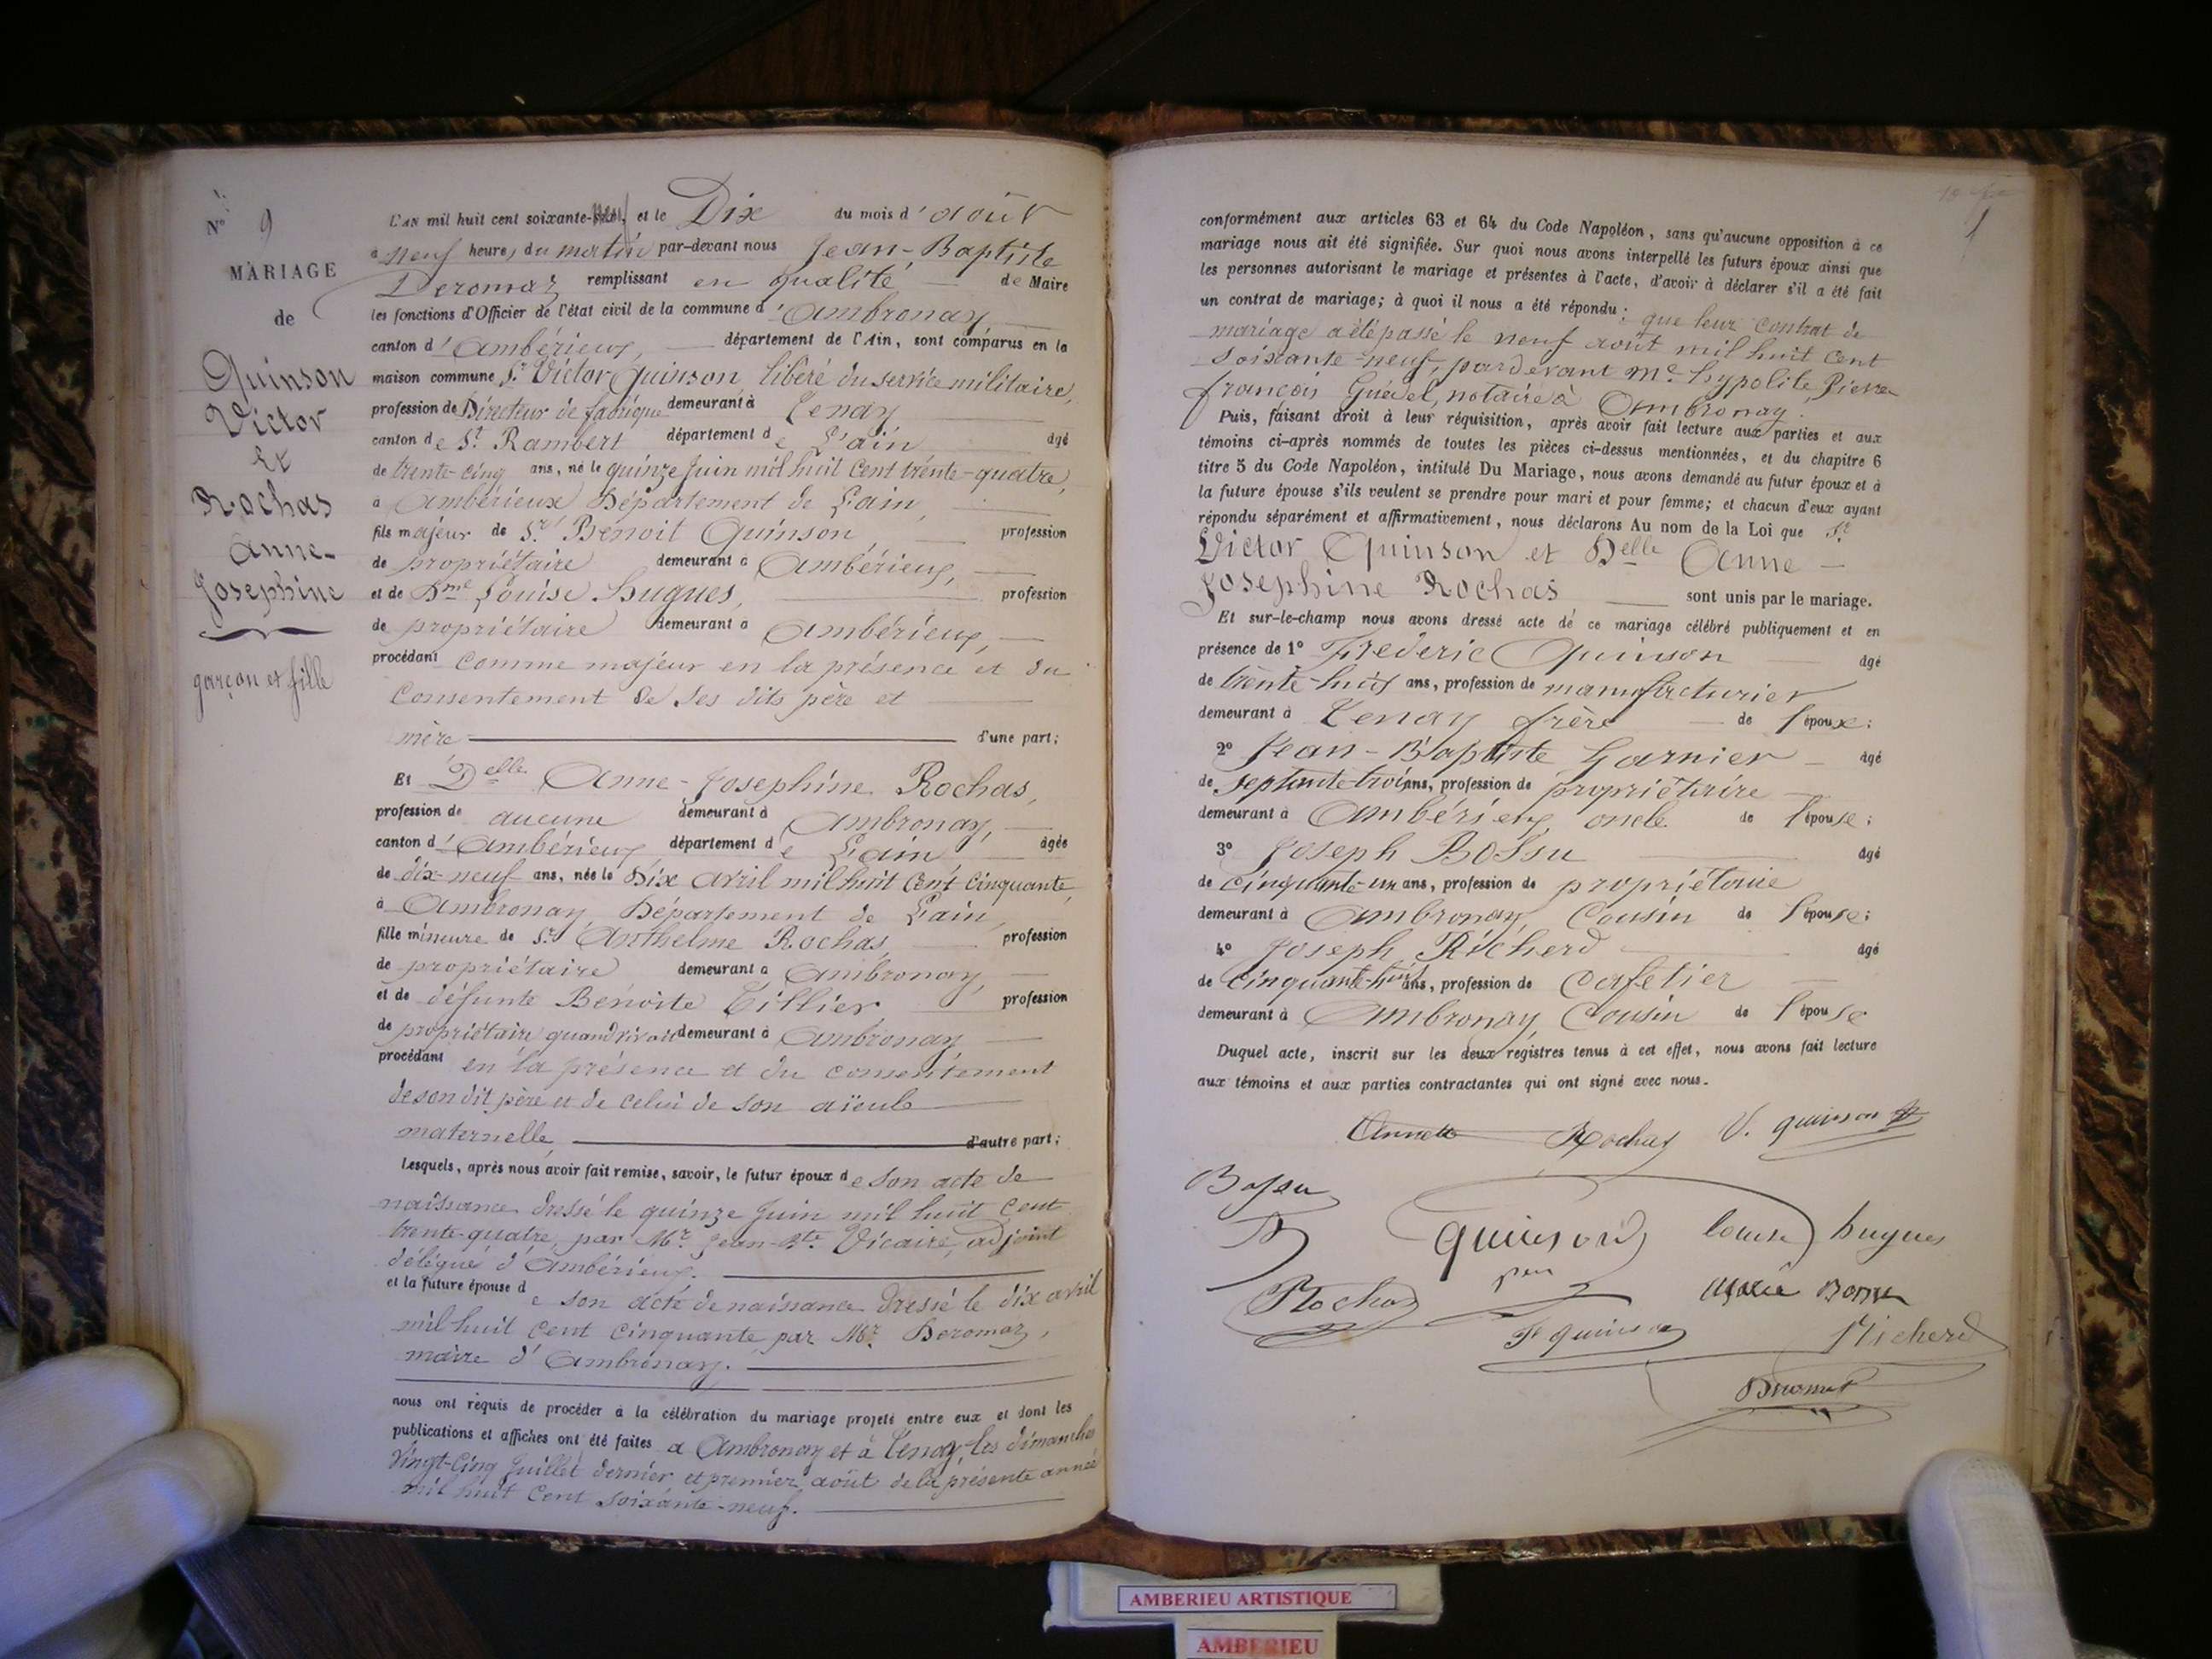 N° 9
MARIAGE
de
Quinson
Victor
et
Rochas
Anne-
Josephine
garçon et fille
L'AN mil huit cent soixante-neuf et le Dix du mois d'août
à neuf heures du matin par-devant nous Jean-Baptiste
Deromas remplissant en qualité de Maire
les fonctions d'Officier de l'état civil de la commune d'Ambronay
canton d'Ambérieux, département de l'Ain, sont comparus en la
maison commune Sr Victor Quinson, libéré du service militaire,
profession de Directeur de fabrique demeurant à Tenay
canton de St Rambert département de L'ain âgé
de trente-cinq ans, né le quinze Juin mil huit cent trente-quatre,
à Ambérieux Département de L'ain,
fils majeur de Sr Benoit Quinson, profession
de propriétaire demeurant à Ambérieux,
et de Dme Louise Hugues, profession
de propriétaire demeurant à Ambérieux,
procédant comme majeur en la présence et du
consentement de ses dits père et
mère d'une part;
Et Delle Anne-Josephine Rochas,
profession de aucune demeurant à Ambronay,
canton d'Ambérieux département de L'ain âgée
de dix-neuf ans, née le Dix avril mil huit cent cinquante,
à Ambronay, Département de L'ain,
fille mineure de Sr Anthelme Rochas, profession
de propriétaire demeurant à Ambronay,
et de défunte Benoite Tillier profession
de propriétaire quand vivait demeurant à Ambronay
procédant en la présence et du consentement
de son dit père et de celui de son aïeule
maternelle d'autre part;
Lesquels, après nous avoir fait remise, savoir, le futur époux de son acte de
naissance dressé le quinze Juin mil huit cent
trente-quatre, par Mr Jean-Bte Vicaire, adjoint
délégué d'Ambérieux.
et la future épouse de son acte de naissance dressé le dix avril
mil huit cent cinquante par Mr Deromas,
maire d'Ambronay.
nous ont requis de procéder à la célébration du mariage projeté entre eux et dont les
publications et affiches ont été faites à Ambronay et à Tenay, les dimanches
Vingt-Cinq Juillet dernier et premier août de la présente année
mil huit cent soixante-neuf.
conformément aux articles 63 et 64 du Code Napoléon, sans qu'aucune opposition à ce
mariage nous ait été signifiée. Sur quoi nous avons interpellé les futurs époux ainsi que
les personnes autorisant le mariage et présentes à l'acte, d'avoir à déclarer s'il a été fait
un contrat de mariage; à quoi il nous a été répondu: que leur contrat de
mariage a été passé le neuf août mil huit cent
soixante-neuf, pardevant Me hypolite, Pierre
françois Guedel, notaire à Ambronay.
Puis, faisant droit à leur réquisition, après avoir fait lecture aux parties et aux
témoins ci-après nommés de toutes les pièces ci-dessus mentionnées, et du chapitre 6
titre 5 du Code Napoléon, intitulé Du Mariage, nous avons demandé au futur époux et à
la future épouse s'ils veulent se prendre pour mari et pour femme; et chacun d'eux ayant
répondu séparément et affirmativement, nous déclarons Au nom de la Loi que Sr
Victor Quinson et Delle Anne-
Josephine Rochas sont unis par le mariage.
Et sur-le-champ nous avons dressé acte de ce mariage célébré publiquement et en
présence de 1° Frederic Quinson âgé
de trente-huit ans, profession de manufacturier
demeurant à Tenay frère de l'époux;
2° Jean-Baptiste Garnier âgé
de septante-trois ans, profession de propriétaire
demeurant à Ambérieux oncle de l'épouse;
3° Joseph Bossu âgé
de cinquante-un ans, profession de propriétaire
demeurant à Ambronay, Cousin de l'épouse;
4° Joseph Richerd âgé
de cinquante-huit ans, profession de cafetier
demeurant à Ambronay, Cousin de l'épouse
Duquel acte, inscrit sur les deux registres tenus à cet effet, nous avons fait lecture
aux témoins et aux parties contractantes qui ont signé avec nous.
Annette Rochas V. quinson
Bossu
quinson louise hugues
Rochas père
fr quinson Richerd
Deromas
AMBERIEU ARTISTIQUE
AMBERIEU